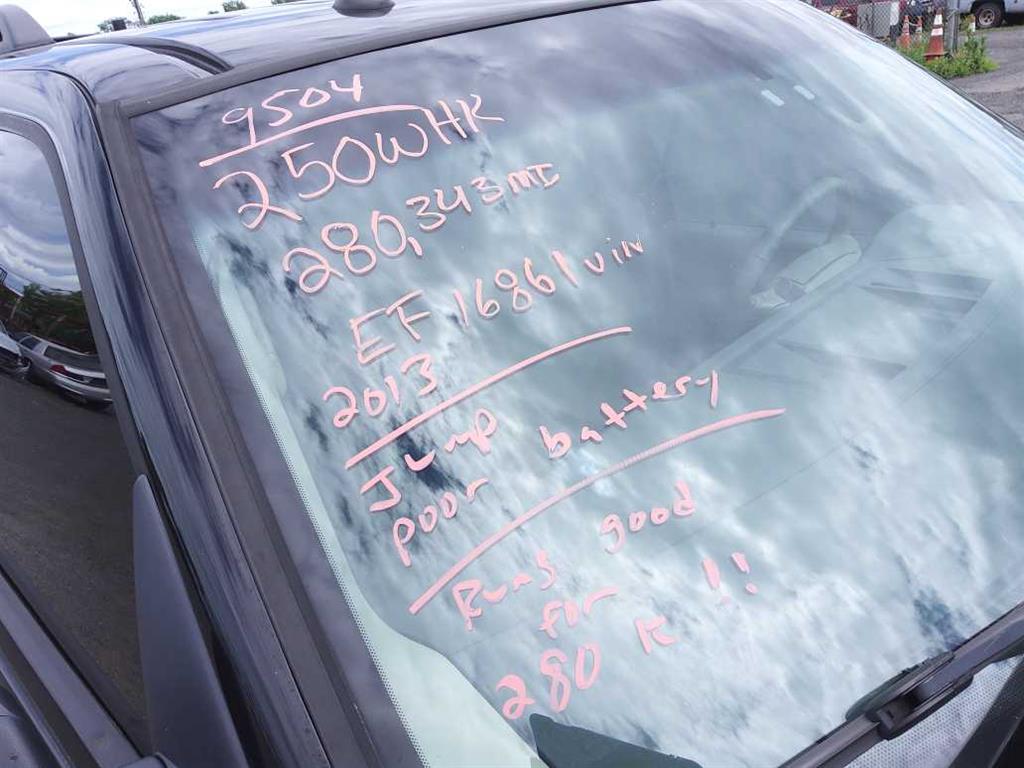 9504
250WHK
280,343 MI
EF16861 VIN
2013
Jump
poor battery
Runs good
for
280 K !!